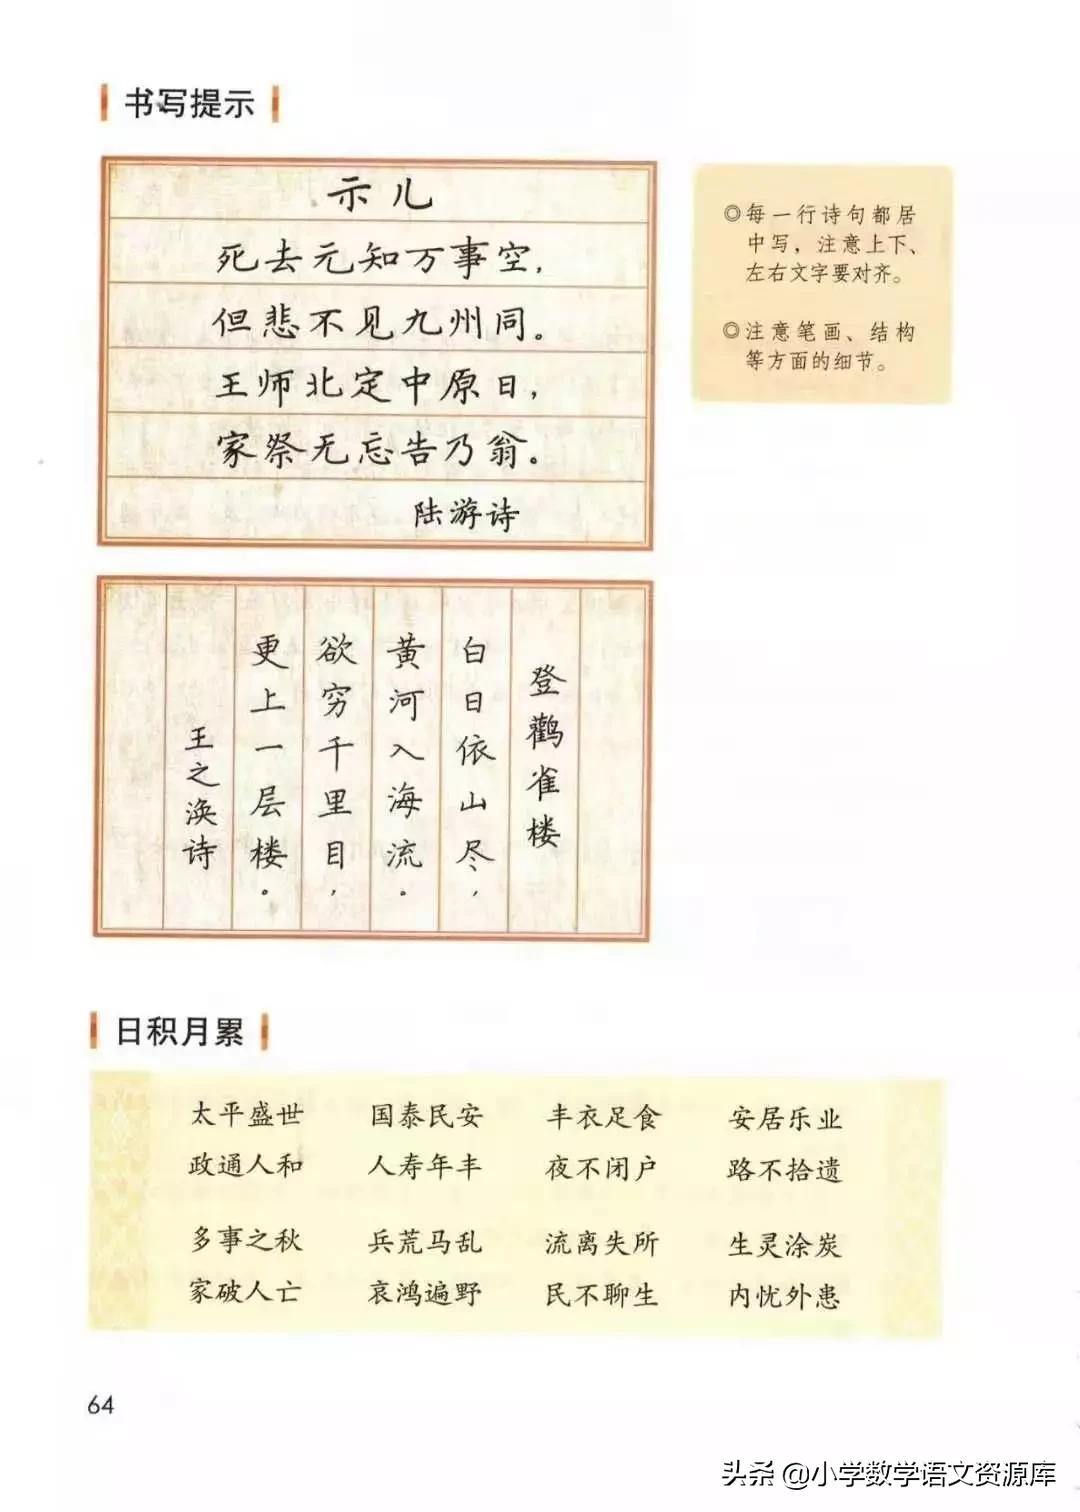 书写提示
示儿
死去元知万事空，
但悲不见九州同。
王师北定中原日，
家祭无忘告乃翁。
陆游诗
◎每一行诗句都居
中写，注意上下、
左右文字要对齐。
◎注意笔画、结构
等方面的细节。
登鹳雀楼
白日依山尽，
黄河入海流。
欲穷千里目，
更上一层楼。
王之涣诗
日积月累
太平盛世 国泰民安 丰衣足食 安居乐业
政通人和 人寿年丰 夜不闭户 路不拾遗
多事之秋 兵荒马乱 流离失所 生灵涂炭
家破人亡 哀鸿遍野 民不聊生 内忧外患
64
头条 @小学数学语文资源库